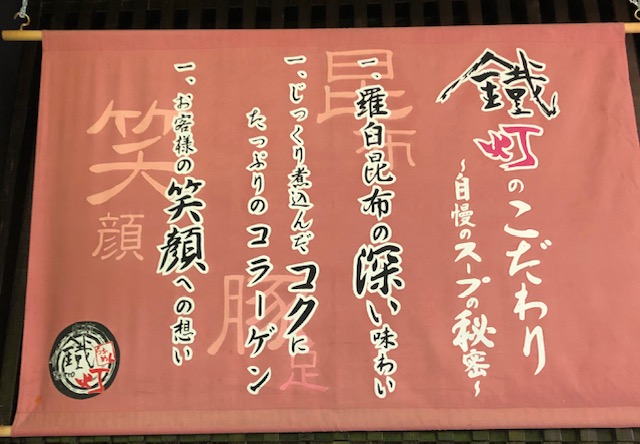 鐵灯のこだわり
~自慢のスープの秘密~
一、羅臼昆布の深い味わい
一、じっくり煮込んだコクに
たっぷりのコラーゲン
一、お客様の笑顔への想い
昆布
豚足
笑顔
らぁめん
鐵灯